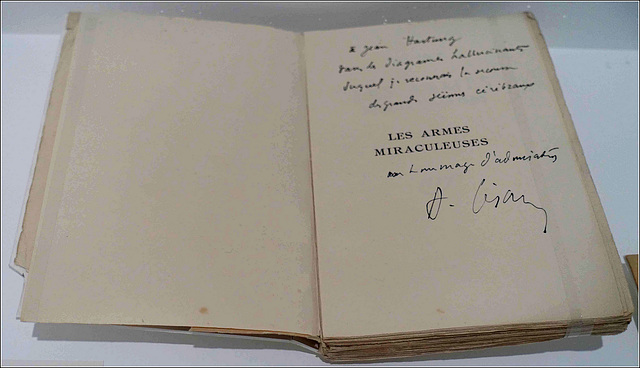 à Jean Hartung
dans le diagramme hallucinant
duquel je reconnais la secousse
des grands séismes cérébraux
LES ARMES
MIRACULEUSES
en hommage d'admiration
A. Césaire